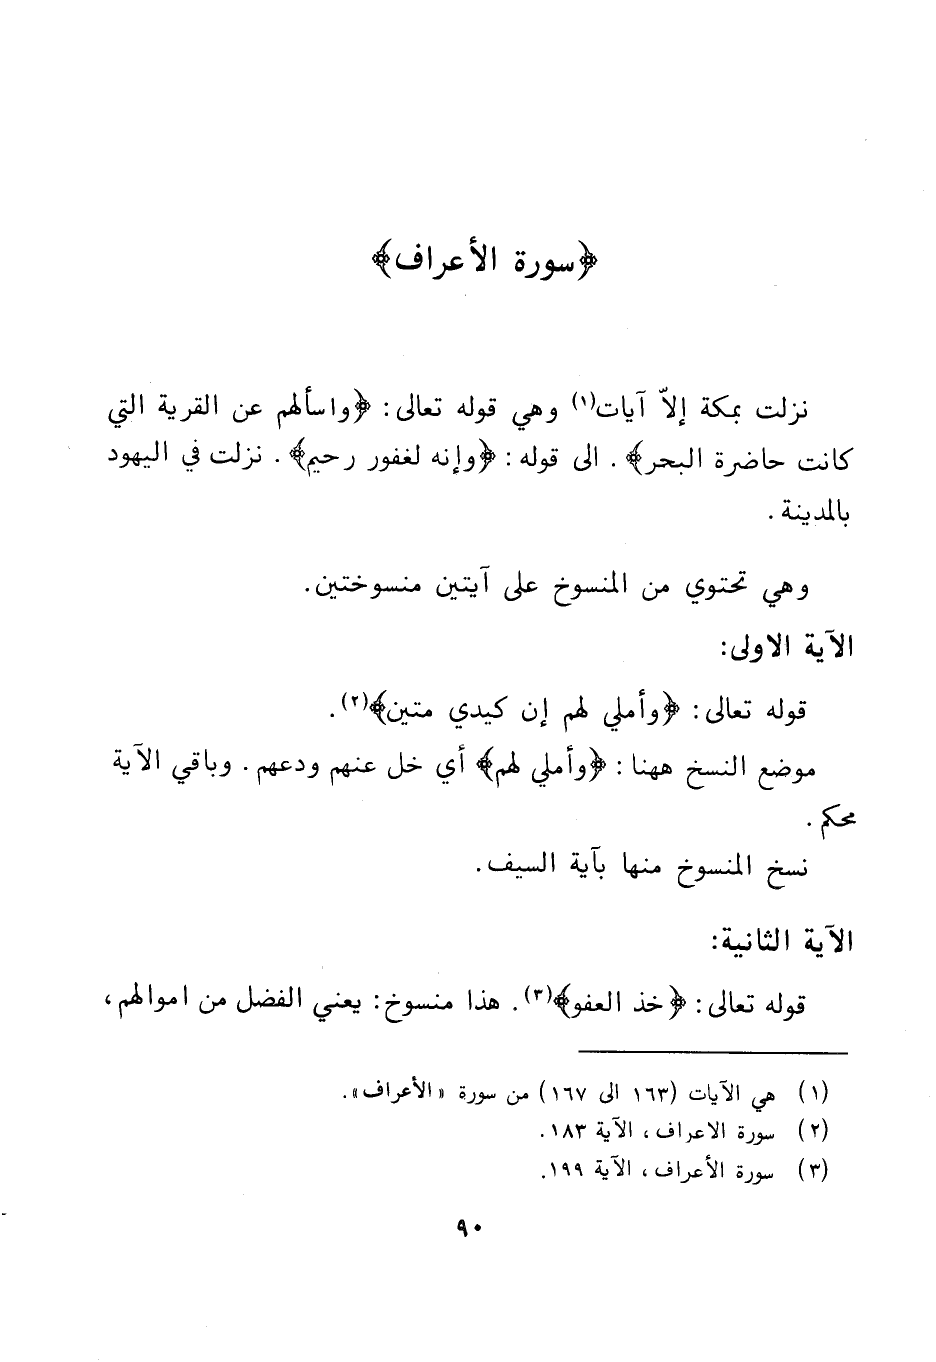 ﴿سورة الأعراف﴾
نزلت بمكة إلاّ آيات(١) وهي قوله تعالى: ﴿واسألهم عن القرية التي
كانت حاضرة البحر﴾ . الى قوله : ﴿وإنه لغفور رحيم﴾ . نزلت في اليهود
بالمدينة .
وهي تحتوي من المنسوخ على آيتين منسوختين.
الآية الاولى:
قوله تعالى : ﴿وأملي لهم إن كيدي متين﴾(٢) .
موضع النسخ ههنا : ﴿وأملي لهم﴾ أي خل عنهم ودعهم . وباقي الآية
محكم .
نسخ المنسوخ منها بآية السيف .
الآية الثانية:
قوله تعالى : ﴿خذ العفو﴾(٣) . هذا منسوخ : يعني الفضل من اموالهم ،
(١) هي الآيات (١٦٣ الى ١٦٧) من سورة «الأعراف».
(٢) سورة الاعراف ، الآية ١٨٣ .
(٣) سورة الأعراف ، الآية ١٩٩ .
٩٠